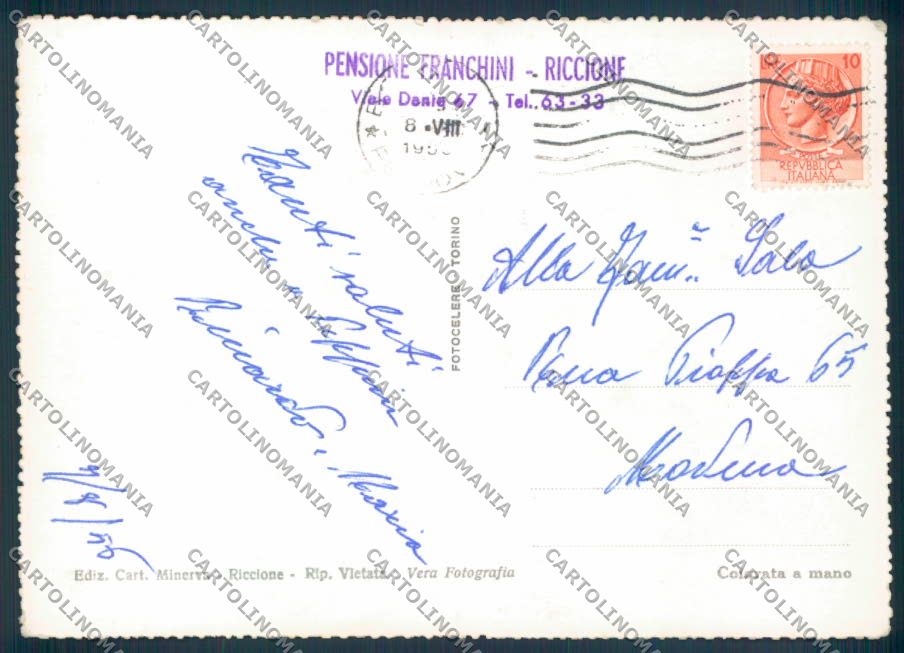 PENSIONE FRANCHINI - RICCIONE
Viale Dante 67 - Tel. 63-33
8 VIII
10
REPVBBLICA
ITALIANA
Tanti saluti
anche a
e Maria
7/8/56
FOTOCELERE TORINO
Alla Fam. Sala
65
Modena
Ediz. Cart. Minerva Riccione - Rip. Vietata Vera Fotografia
Colorata a mano
CARTOLINOMANIA